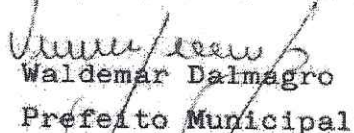 Waldemar Dalmagro
Prefeito Municipal